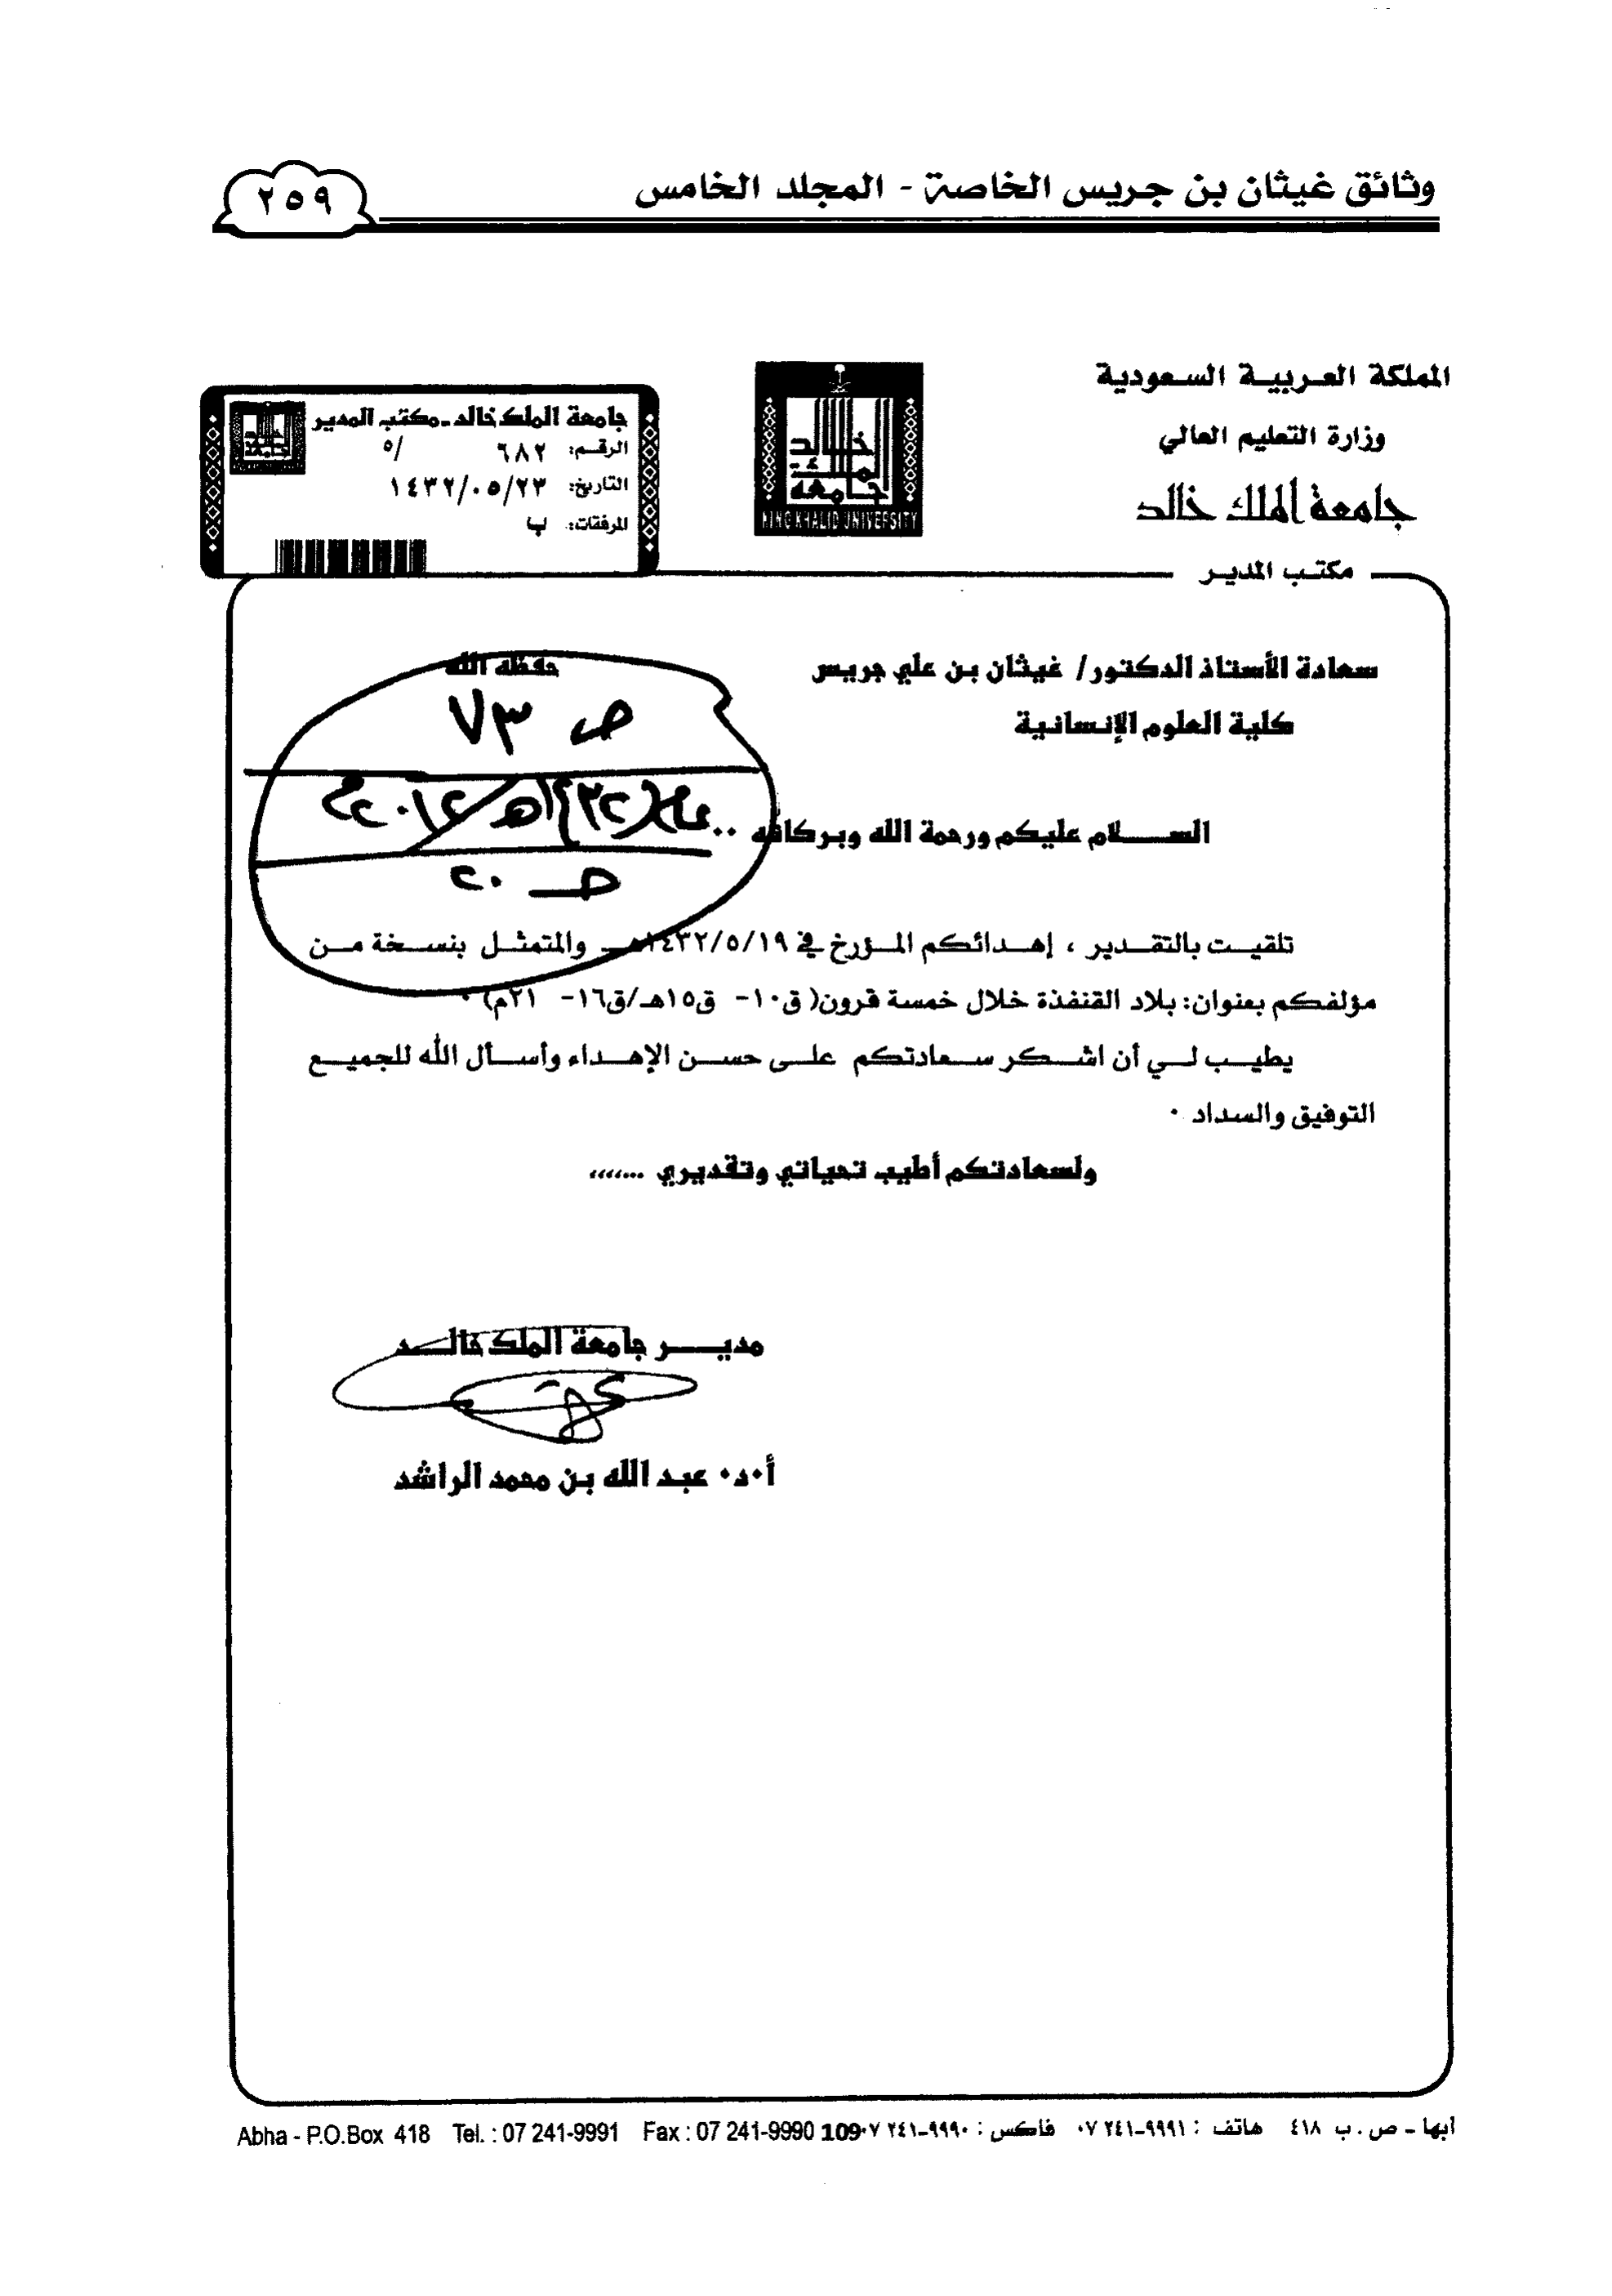 وثائق غيثان بن جريس الخاصة - المجلد الخامس
٢٥٩
المملكة العربية السعودية
وزارة التعليم العالي
جامعة الملك خالد
مكتب المدير
خالد
الملك
جامعة
KING KHALID UNIVERSITY
جامعة الملك خالد - مكتب المدير
الرقم: ٦٨٢ /٥
التاريخ: ١٤٣٢/٠٥/٢٣
المرفقات: ب
سعادة الأستاذ الدكتور/ غيثان بن علي جريس حفظه الله
كلية العلوم الإنسانية
ص ٧٣
ص ٢٠
السلام عليكم ورحمة الله وبركاته ..
تلقيت بالتقدير ، إهدائكم المؤرخ في ١٤٣٢/٥/١٩هـ والمتمثل بنسخة من
مؤلفكم بعنوان: بلاد القنفذة خلال خمسة قرون( ق١٠- ق١٥هـ/ق١٦- ٢١م) ٠
يطيب لي أن اشكر سعادتكم على حسن الإهداء وأسأل الله للجميع
التوفيق والسداد ٠
ولسعادتكم أطيب تحياتي وتقديري ،،،،،،،
مدير جامعة الملك خالد
أ٠د٠ عبد الله بن محمد الراشد
أبها - ص . ب ٤١٨ هاتف : ٩٩٩١-٢٤١ ٠٧ فاكس : ٩٩٩٠-٢٤١ ٠٧ 109 Abha - P.O.Box 418 Tel. : 07 241-9991 Fax : 07 241-9990